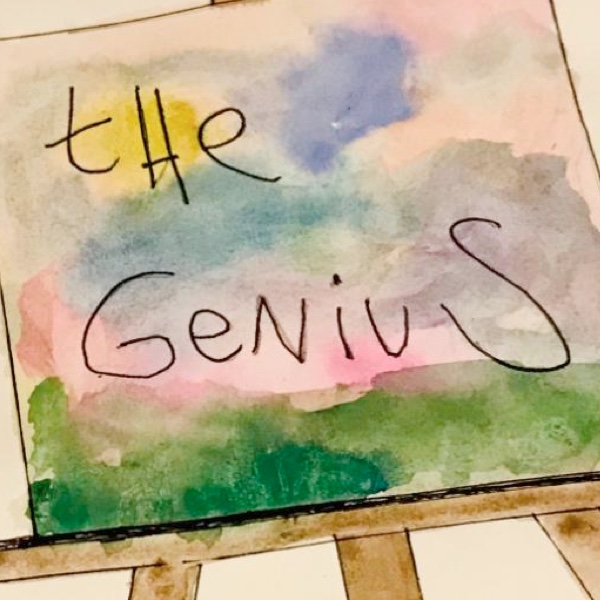 tHe
GeNiuS